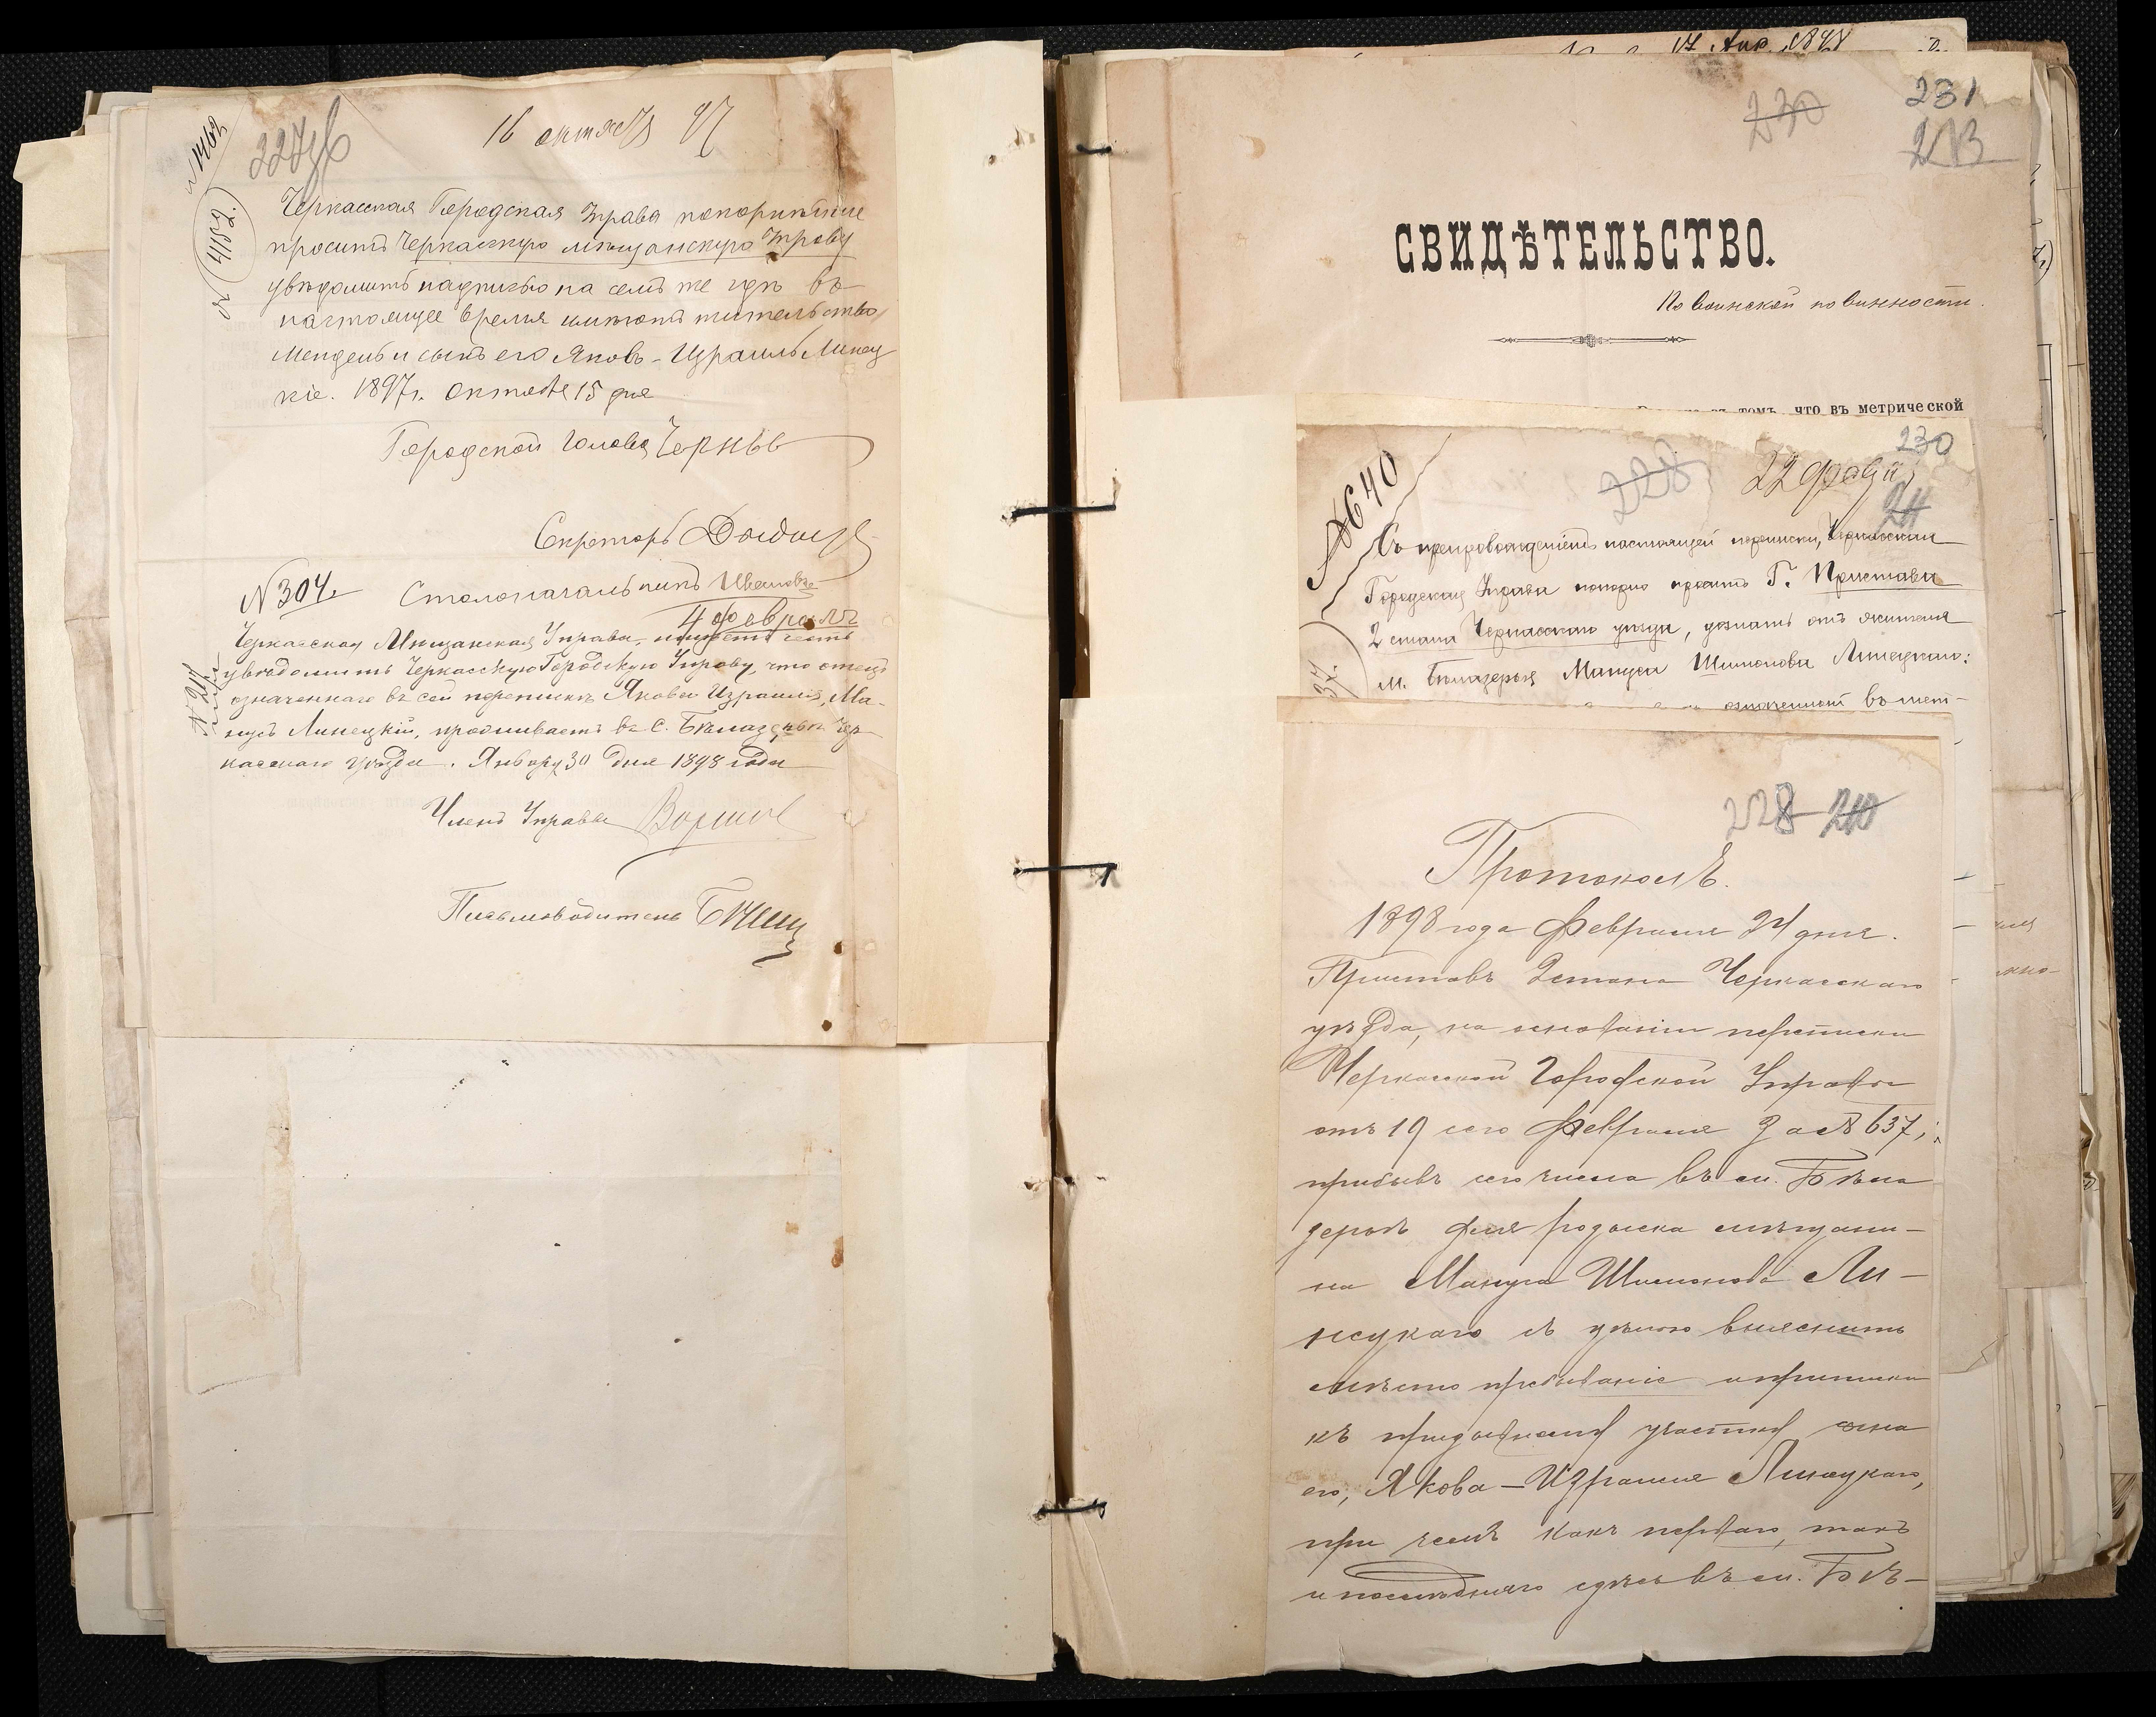 № 1462
227об
16 октября 97
№ 4152.
Черкасская Городская Управа покорнѣйше
проситъ Черкасскую мѣщанскую Управу
увѣдомить надписью на семъ же гдѣ въ
настоящее время имѣютъ жительство
Мендель и сынъ его Яковъ-Израиль Линец
кіе. 1897 г. Октября 15 дня
Городской Голова
Секретарь
Столоначальникъ
№ 304.
4 февраля
Черкасская Мѣщанская Управа, имѣетъ честь
увѣдомить Черкасскую Городскую Управу, что отецъ
означеннаго въ сей перепискѣ Якова Израиля, Ма-
нусъ Линецкій, проживаетъ въ С. Бѣлазерьи Чер-
касскаго уѣзда. Января 30 дня 1898 года
Членъ Управы
Письмоводитель
17 Апр. 1898
230
231
213
СВИДѢТЕЛЬСТВО.
По воинской повинности.
томъ, что въ метрической
№ 640
228
230
22 февр
211
Съ препровожденіемъ настоящей переписки, Черкасская
Городская Управа покорно проситъ Г. Пристава
2 стана Черкасскаго уѣзда, дознать отъ жителя
м. Бѣлазерья Мануса Шимонова Линецкаго:
означенной въ мет-
228 210
Протоколъ.
1898 года Февраля 24 дня.
Приставъ 2 стана Черкасскаго
уѣзда, на основаніи переписки
Черкасской Городской Управы
отъ 19 сего Февраля за № 637,
прибывъ сего числа въ м. Бѣла
зерье для розыска мѣщани-
на Мануса Шимонова Ли-
нецкаго съ цѣлью выяснить
мѣсто пребываніе и приписки
къ призывному участку сына
его, Якова-Израиля Линецкаго,
при чемъ какъ перваго, такъ
и послѣдняго здѣсь въ м. Бѣ-